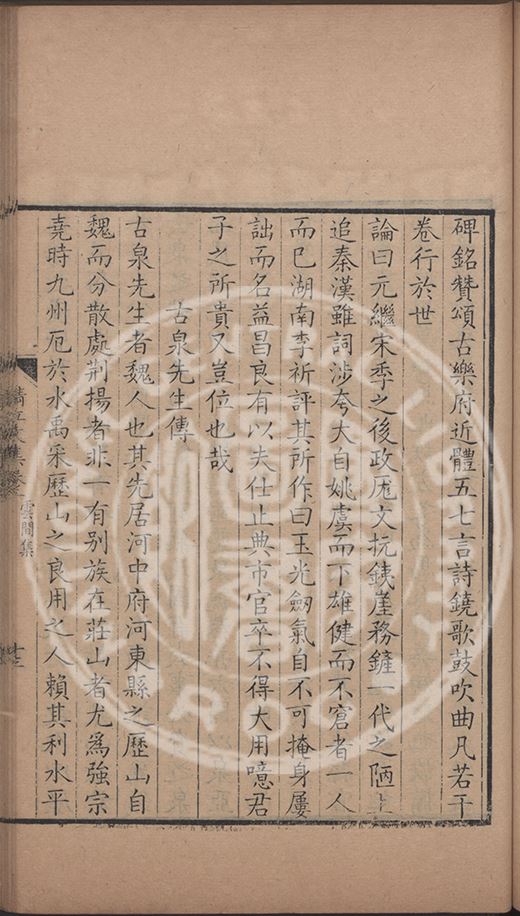 碑銘贊頌古樂府近體五七言詩鐃歌鼓吹曲凡若干
卷行於世
論曰元繼宋季之後政厖文抏鐵崖務鏟一代之陋上
追秦漢雖詞涉夸大自姚虞而下雄健而不窘者一人
而巳湖南李祈評其所作曰玉光劍氣自不可掩身屢
詘而名益昌良有以夫仕止典市官卒不得大用噫君
子之所貴又豈位也哉
古泉先生傳
古泉先生者魏人也其先居河中府河東縣之歷山自
魏而分散處荆揚者非一有別族在莊山者尤爲強宗
堯時九州厄於水禹采歷山之良用之人賴其利水平
雲間集
十三